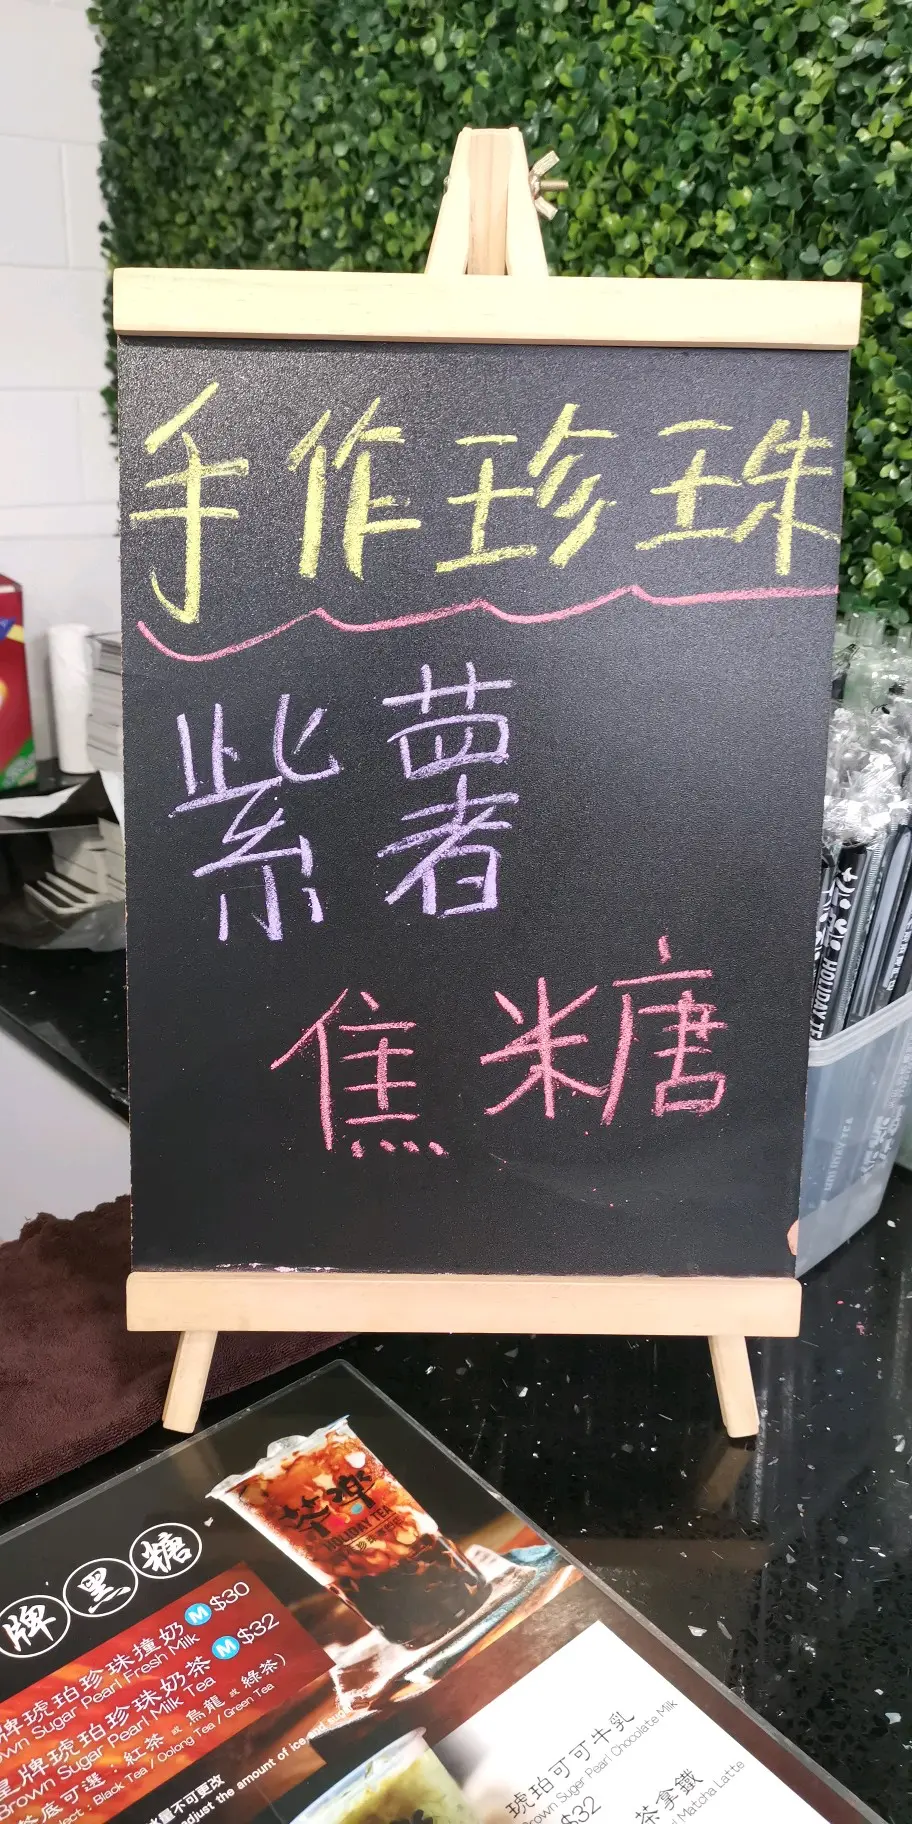 手作珍珠
紫薯
焦糖
HOLIDAY TE
茶樂
HOLIDAY TEA
牌黑糖
牌琥珀珍珠撞奶 M $30
own Sugar Pearl Fresh Milk
皇牌琥珀珍珠奶茶 M $32
Brown Sugar Pearl Milk Tea
茶底可選：紅茶 或 烏龍 或 綠茶）
lect : Black Tea / Oolong Tea / Green Tea
冰量不可更改
adjust the amount of ice and
琥珀可可牛乳
Brown Suger Pearl Chocolate Milk
$32
茶拿鐵
d Matcha Latte